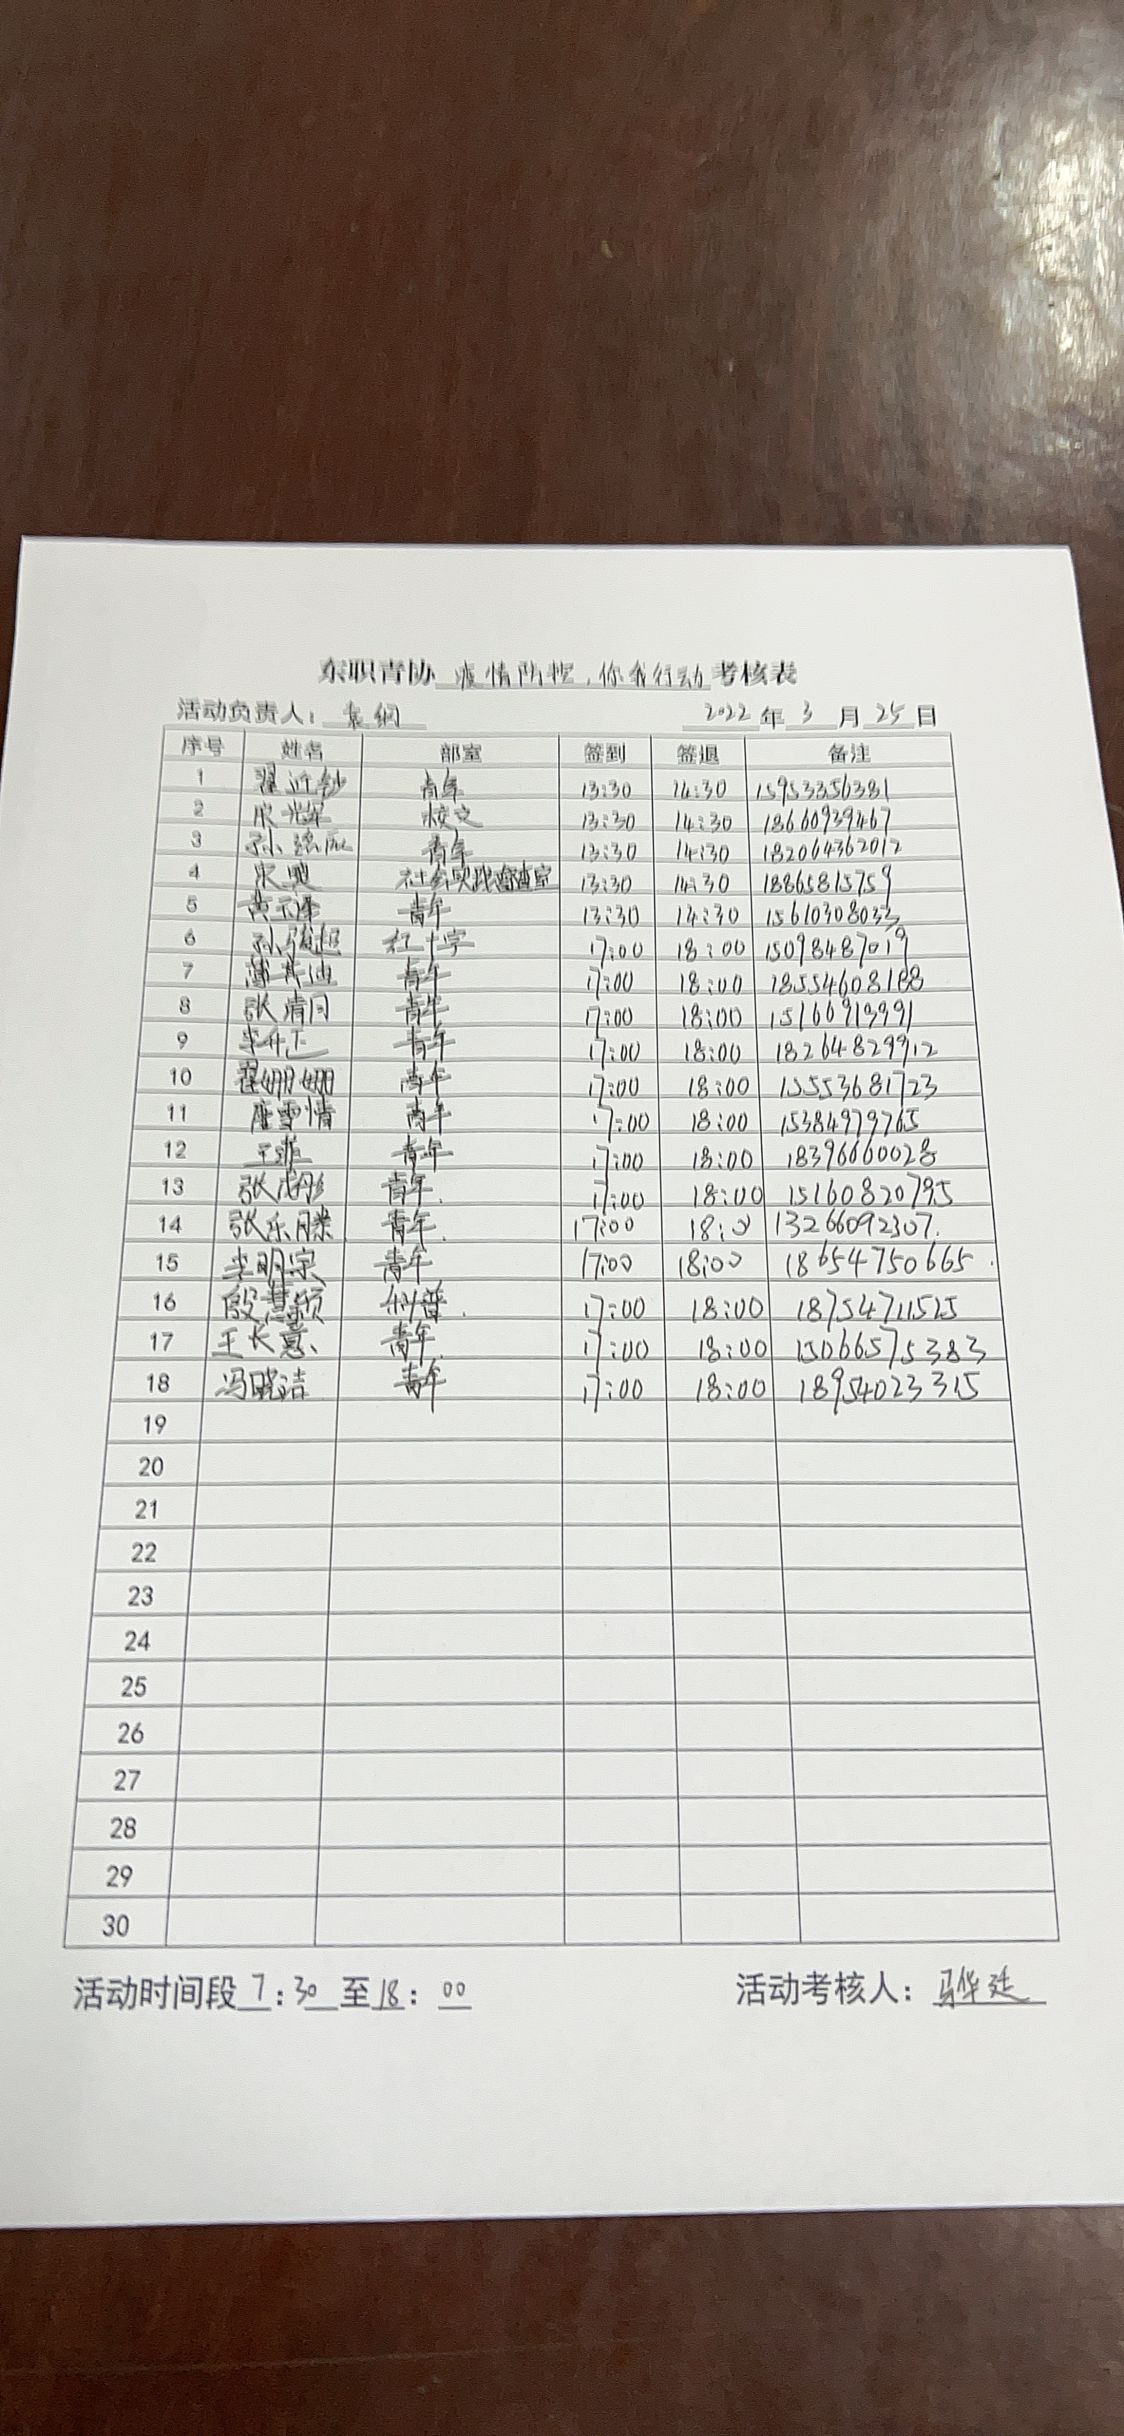 东职青协 疫情防控，你我行动 考核表
活动负责人： 2022年3月25日
序号 姓名 部室 签到 签退 备注
1 青年 13:30 14:30 15953356381
2 宋光辉 校文 13:30 14:30 18660939467
3 孙 青年 13:30 14:30 182064362012
4 宋 社会实践 13:30 14:30 18865815759
5 黄 青年 13:30 14:30 15610308033
6 孙骏超 红十字 17:00 18:00 15098487019
7 青年 17:00 18:00 18554608188
8 张清闰 青年 17:00 18:00 15166919991
9 李 青年 17:00 18:00 18264829912
10 翟姗姗 青年 17:00 18:00 15553681723
11 唐雪情 青年 17:00 18:00 15384979765
12 王 青年 17:00 18:00 18396660028
13 张成彤 青年. 17:00 18:00 15160820795
14 张乐滕 青年. 17:00 18:0 13266092307.
15 李明宗 青年 17:00 18:00 18654750665.
16 殷慧颖 科普. 17:00 18:00 18754711525
17 王长慧、 青年. 17:00 18:00 15066575383
18 冯晓洁 青年 17:00 18:00 18954023315
19
20
21
22
23
24
25
26
27
28
29
30
活动时间段7:30至18:00 活动考核人：